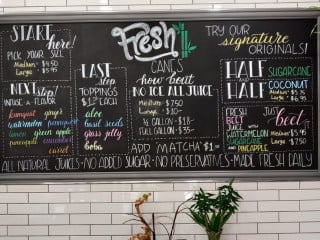 START
here!
PICK YOUR SIZE
Medium - $4.50
Large - $5.95
NEXT stop!
INFUSE A FLAVOR
kumquat ginger
watermelon
lemon green apple
pineapple
LAST
stop
TOPPINGS
aloe
basil seeds
grass jelly
boba
Fresh
CANE'S
how 'bout
NO ICE ALL JUICE
Medium - $7.50
Large - $10
½ GALLON - $18
FULL GALLON - $35
ADD MATCHA
TRY OUR
signature
ORIGINALS!
HALF SUGARCANE
AND
HALF COCONUT
Medium - $5.75
Large - $6.95
FRESH
BEET
JUICE
WITH
WATERMELON
SUGARCANE
AND PINEAPPLE
Just
BEET!
Medium $7.50
Large $9.50
ALL NATURAL JUICES - NO ADDED SUGAR - NO PRESERVATIVES - MADE FRESH DAILY